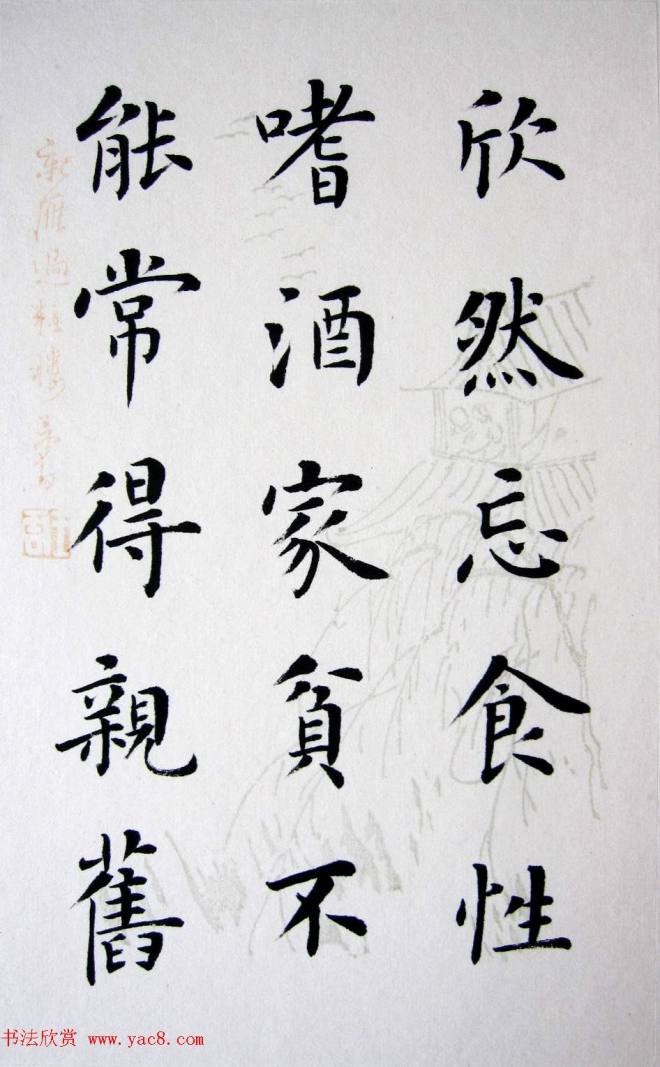 欣然忘食性
嗜酒家貧不
能常得親舊
新雁過粧樓
书法欣赏 www.yac8.com